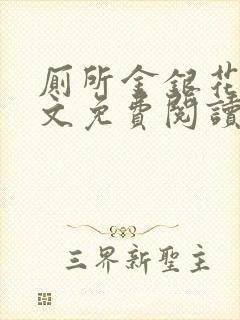 厠所金銀花
文免費閱讀
三界新聖主